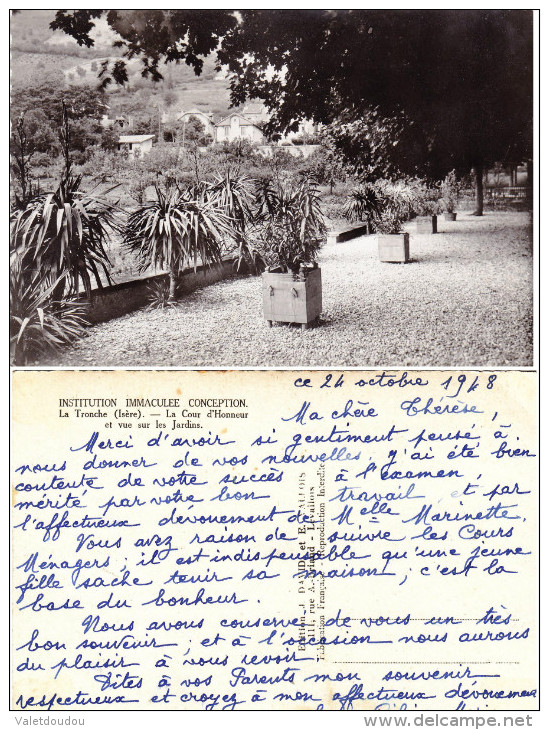 INSTITUTION IMMACULEE CONCEPTION.
La Tronche (Isère). — La Cour d'Honneur
et vue sur les Jardins.
ce 24 octobre 1948
Ma chère Thérèse,
Merci d'avoir si gentiment pensé à
nous donner de vos nouvelles, y'ai été bien
contente de votre succès à l'examen,
mérité par votre bon travail, et par
l'affectueux dévouement de Melle Marinette.
Vous avez raison de suivre les Cours
Ménagers, il est indispensable qu'une jeune
fille sache tenir sa maison; c'est la
base du bonheur.
Nous avons conservé de vous un très
bon souvenir; et à l'occasion nous aurons
du plaisir à vous revoir.
Dites à vos Parents mon souvenir
respectueux et croyez à mon affectueux dévouement
Edition J. DAVID et E. VALLOIS
rue A. Levallois
Fabrication Française - Reproduction Interdite
Valetdoudou
delcampe.net